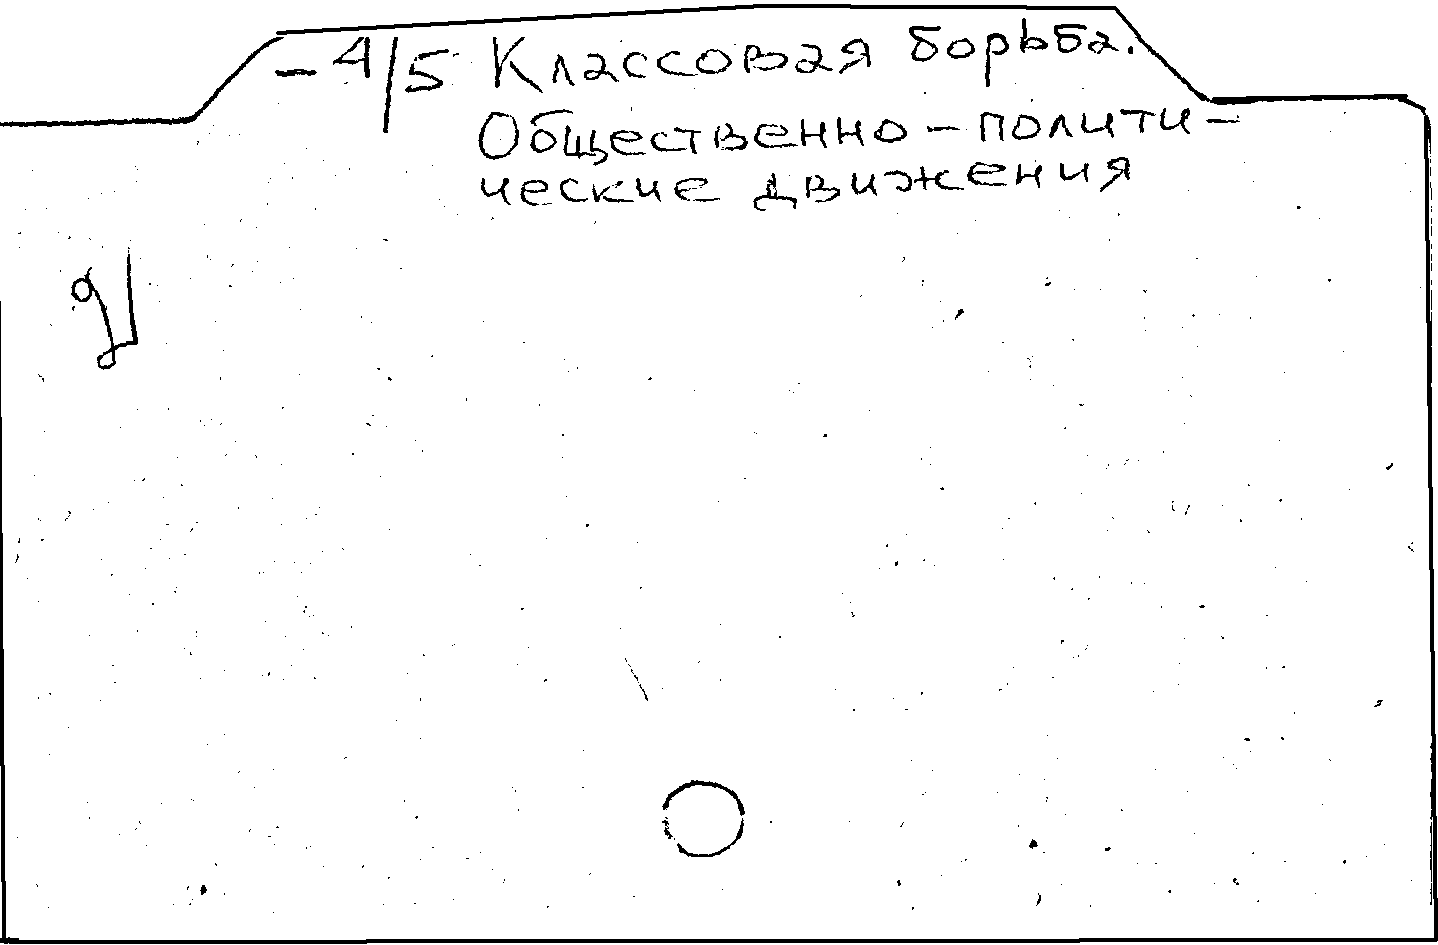 -4/5 Классовая борьба.
Общественно-полити-
ческие движения